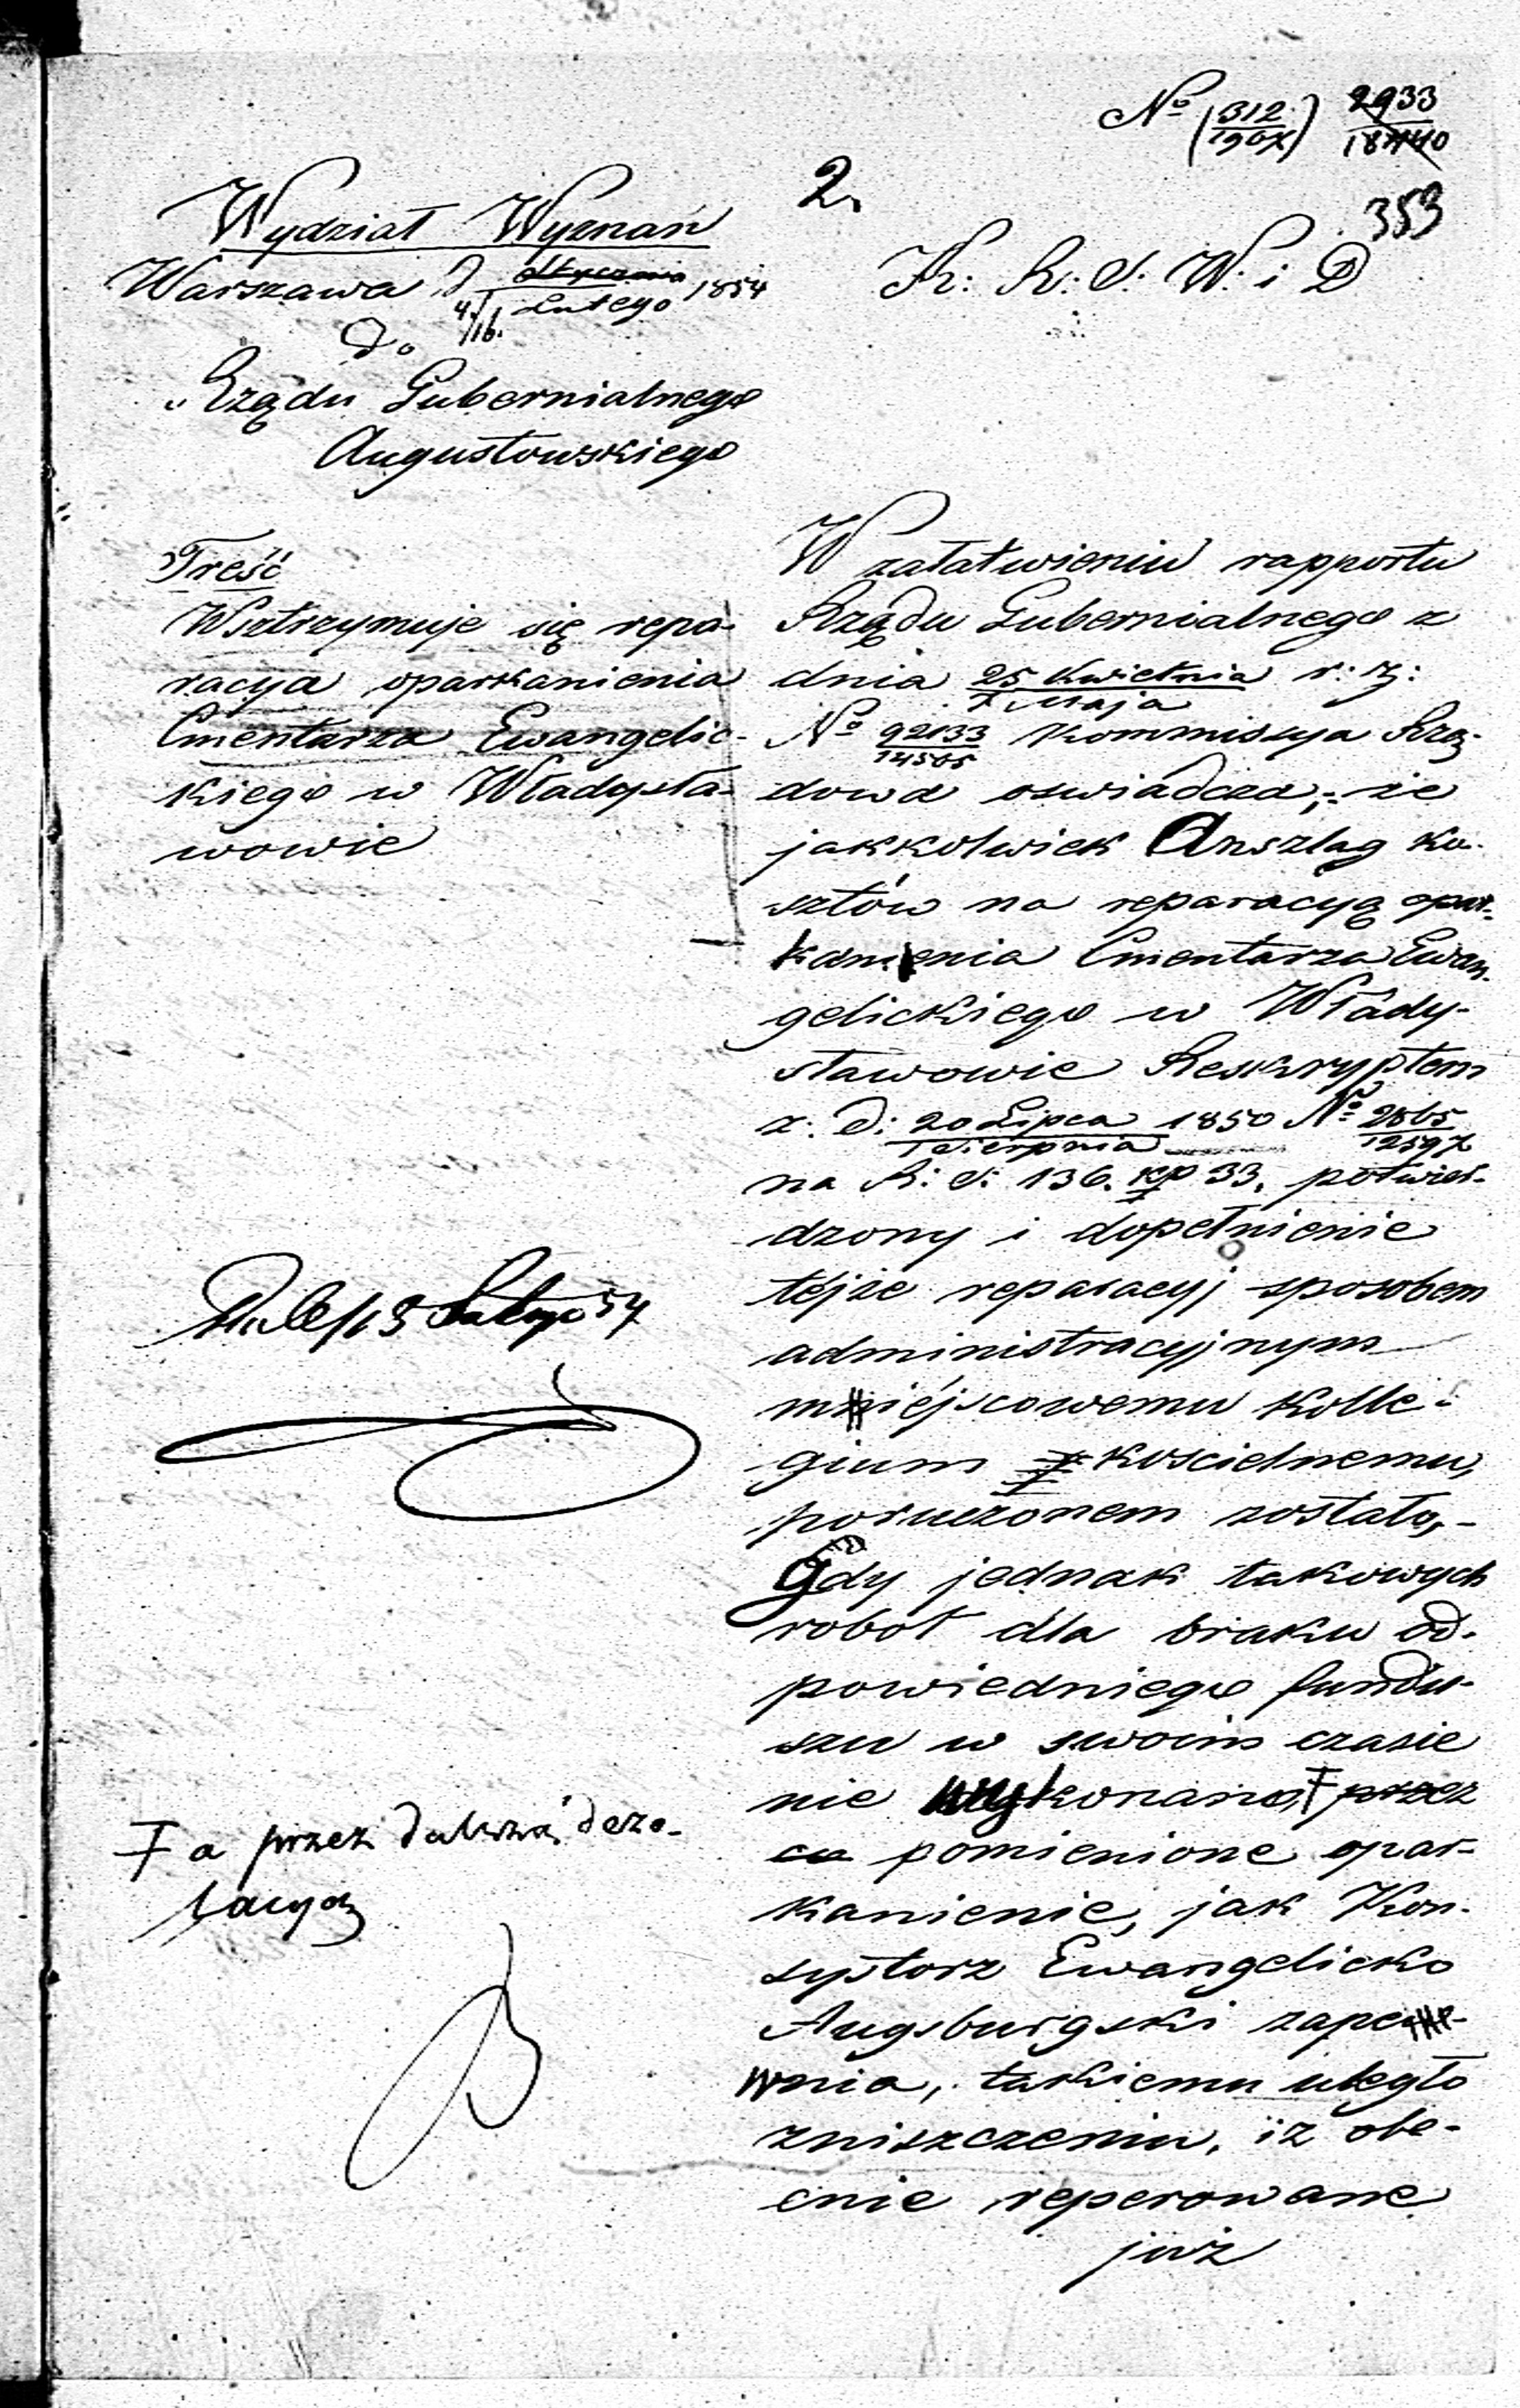 No (312/190X) 2933/18740
353
2.
Wydział Wyznań
Warszawa d. 4/16. Stycznia/Lutego 1854
K: R: S: W: i D
Do
Rządu Gubernialnego
Augustowskiego
Treść
Wsztrzymuje się repa-
racya oparkanienia
Cmentarza Ewangelic-
kiego w Władysła-
wowie
W załatwieniu rapportu
Rządu Gubernialnego z
dnia 25 Kwietnia/7 Maja r: z:
No 92133/14505 Kommissya Rzą-
dowa oswiadcza, że
jakkolwiek Anszlag ko-
sztów na reparacyą opar-
kanienia Cmentarza Ewan-
gelickiego w Włady-
sławowie Reskryptem
z: d: 20 Lipca/1 Sierpnia 1850 No 2865/12597
na R: S: 136. kp 33, potwier-
dzony i dopełnienie
tejże reparacyj sposobem
administracyjnym
miéjscowemu Kolle-
gium koscielnemu,
poruczonem zostało,-
Gdy jednak takowych
robot dla braku od-
powiedniego fundu-
szu w swoim czasie
nie wykonano, Ŧ przez
co pomienione opar-
kanienie, jak Kon-
systorz Ewangelicko
Augsburgski zape-
wnia, takiemu uległo
zniszczeniu, iż obe-
cnie reperowane
już
18 Lutego 54
Ŧ a przez dalszą dezo-
lacyą